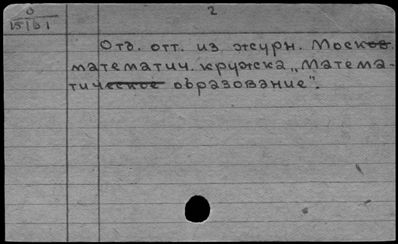 0 2
15/b1
Отд. отт. из журн. Москов.
математич. кружка „Матема-
тическое образование".